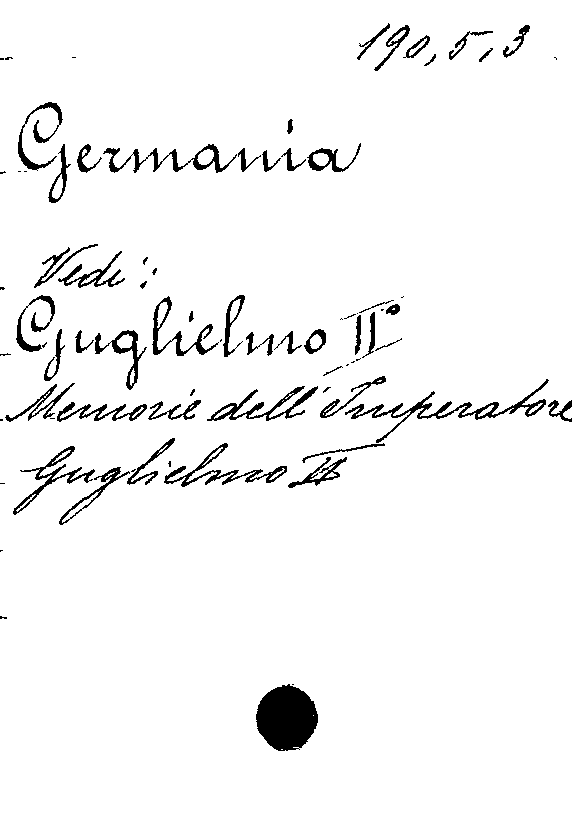 190,5,3
Germania
Vedi:
Guglielmo II°
Memorie dell'Imperatore
Guglielmo II